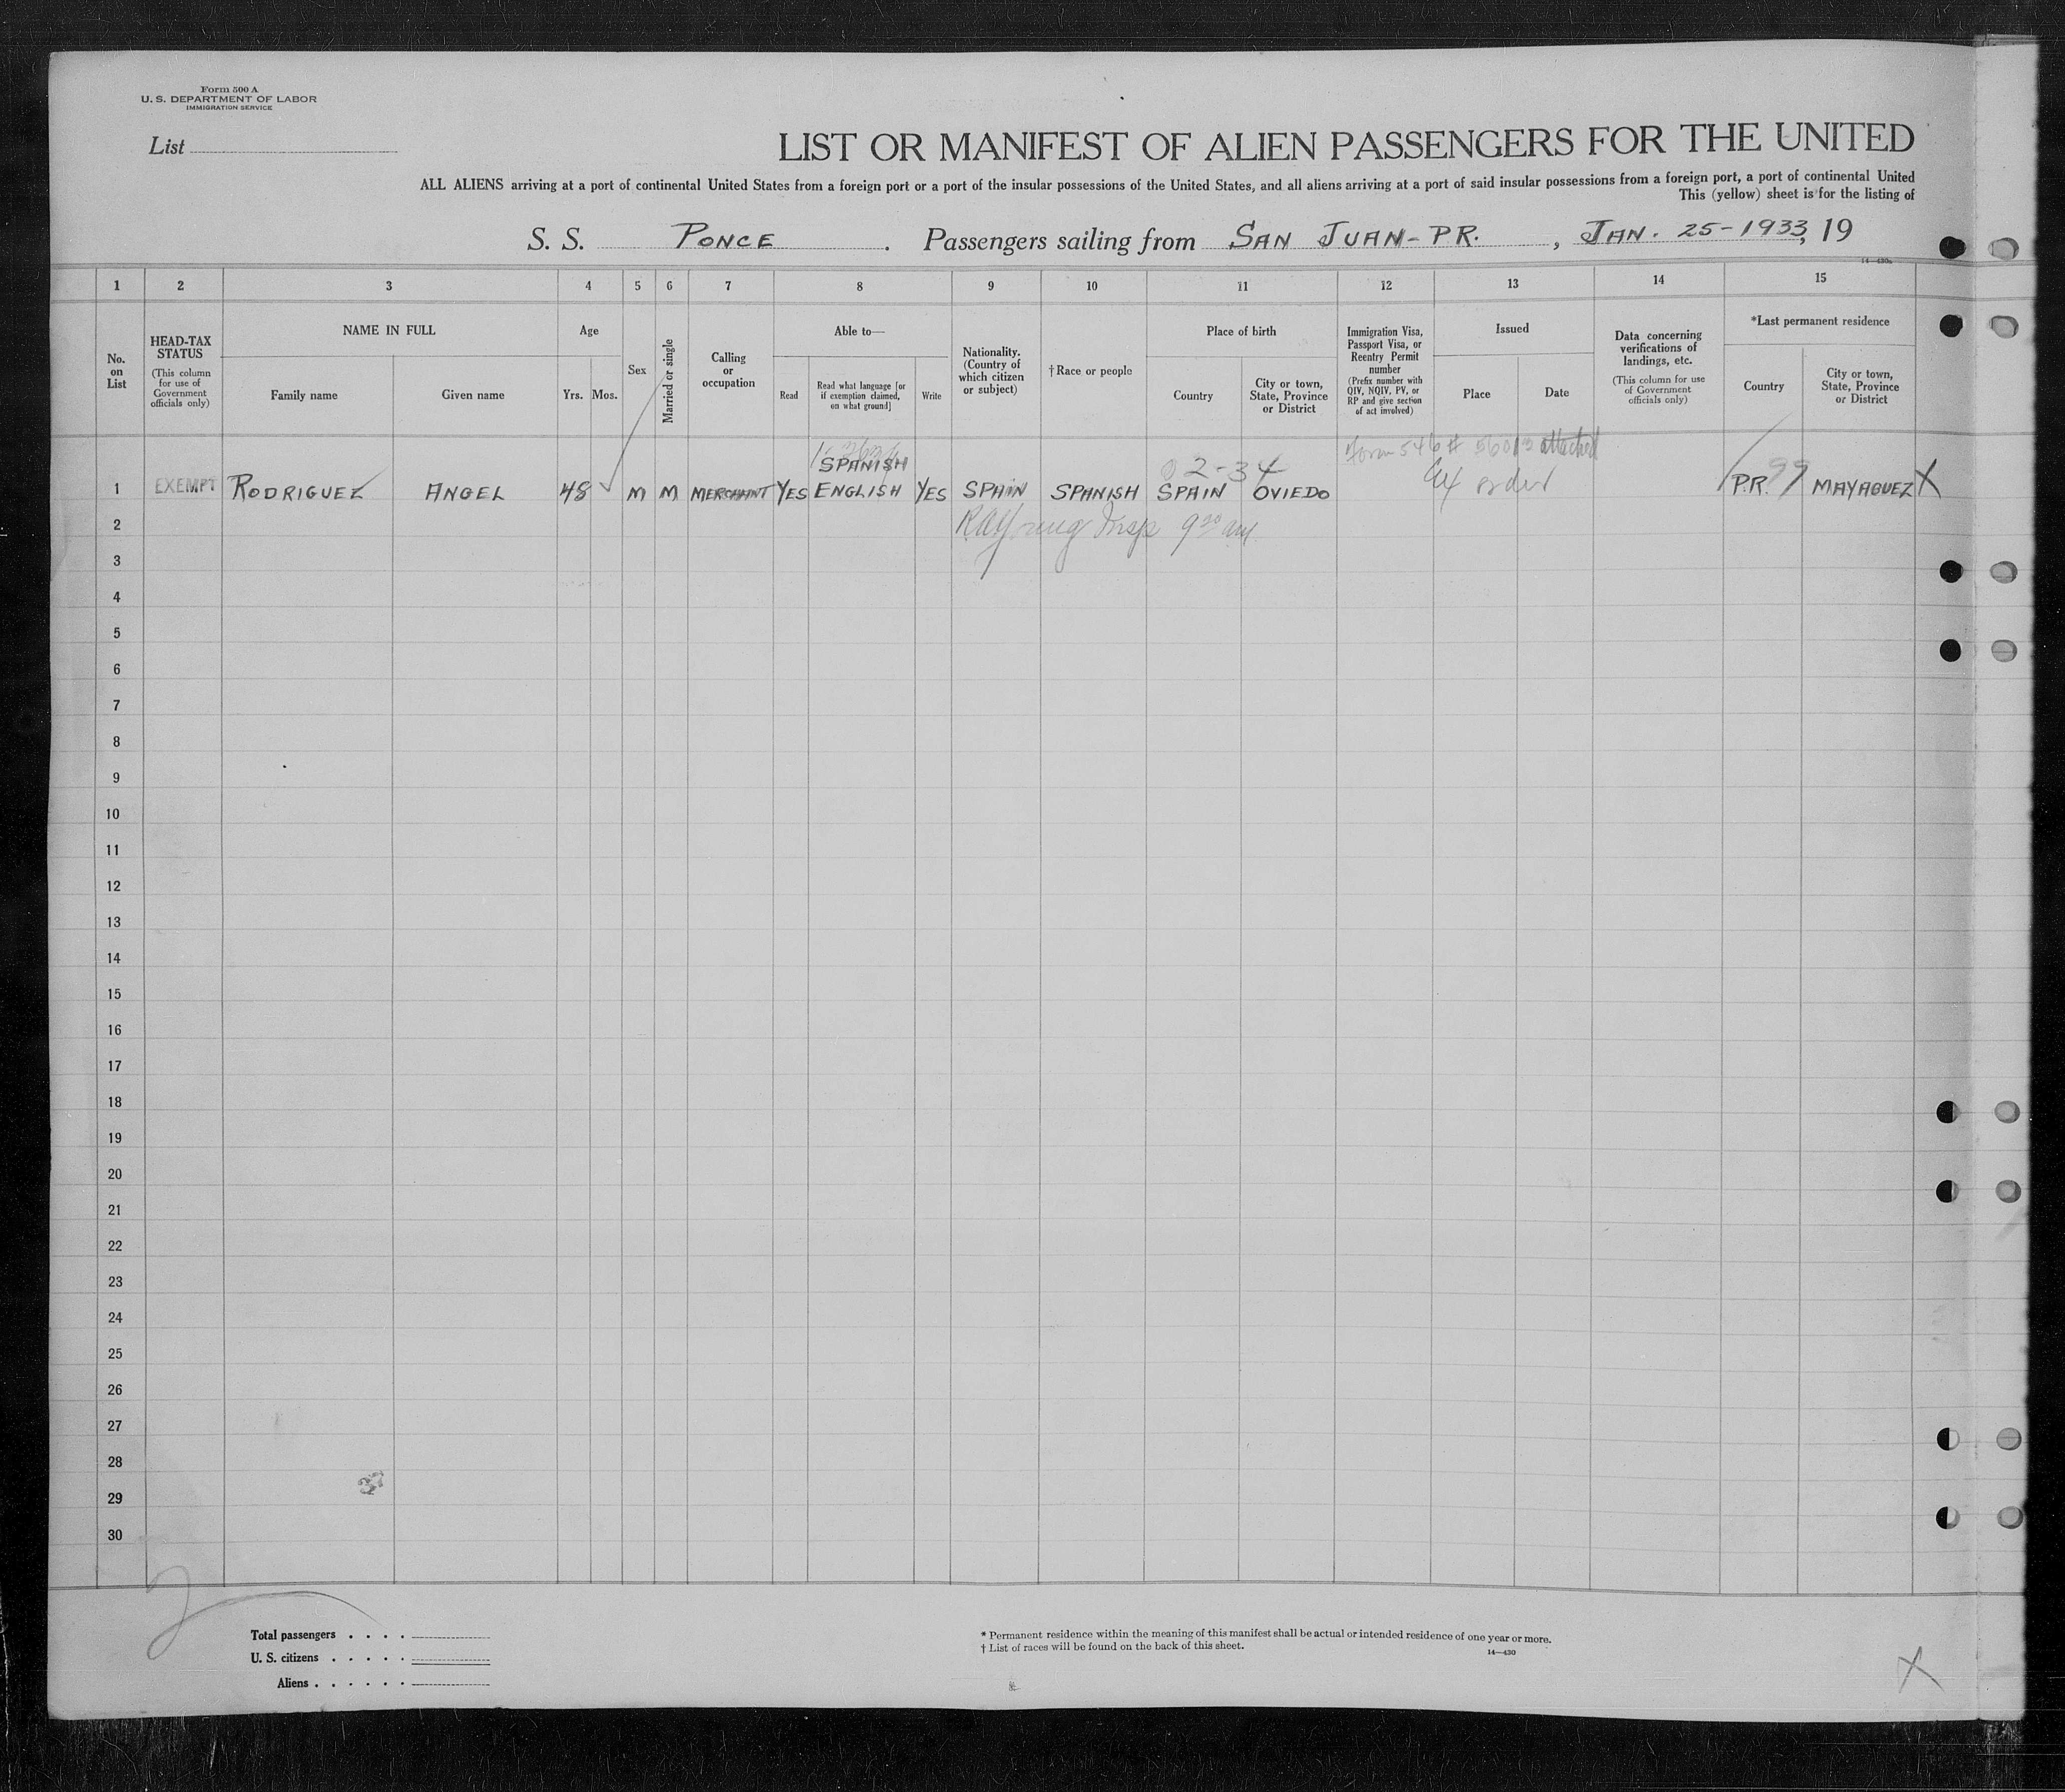 Form 500 A
U. S. DEPARTMENT OF LABOR
IMMIGRATION SERVICE
List
LIST OR MANIFEST OF ALIEN PASSENGERS FOR THE UNITED
ALL ALIENS arriving at a port of continental United States from a foreign port or a port of the insular possessions of the United States, and all aliens arriving at a port of said insular possessions from a foreign port, a port of continental United
This (yellow) sheet is for the listing of
S. S. PONCE . Passengers sailing from SAN JUAN - P.R. , JAN. 25 - 1933, 19
14—430a
1 2 3 4 5 6 7 8 9 10 11 12 13 14 15
No. on List
HEAD-TAX STATUS
(This column for use of Government officials only)
NAME IN FULL
Family name
Given name
Age
Yrs.
Mos.
Sex
Married or single
Calling or occupation
Able to—
Read
Read what language [or if exemption claimed, on what ground]
Write
Nationality. (Country of which citizen or subject)
†Race or people
Place of birth
Country
City or town, State, Province or District
Immigration Visa, Passport Visa, or Reentry Permit number
(Prefix number with QIV, NQIV, PV, or RP and give section of act involved)
Issued
Place
Date
Data concerning verifications of landings, etc.
(This column for use of Government officials only)
*Last permanent residence
Country
City or town, State, Province or District
Form 546 # 56013 attached
SPANISH
02-34
99
1 EXEMPT RODRIGUEZ ANGEL 48 M M MERCHANT YES ENGLISH YES SPAIN SPANISH SPAIN OVIEDO order P.R. MAYAGUEZ X
2 Young Insp 9 30 am
3
4
5
6
7
8
9
10
11
12
13
14
15
16
17
18
19
20
21
22
23
24
25
26
27
28
29
30
33
Total passengers . . . .
U. S. citizens . . . . .
Aliens . . . . . .
* Permanent residence within the meaning of this manifest shall be actual or intended residence of one year or more.
† List of races will be found on the back of this sheet.
14—430
X